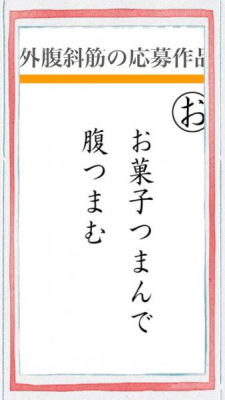 外腹斜筋の応募作品
お
お菓子つまんで
腹つまむ